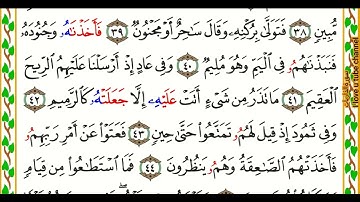 مُّبِينٍ ٣٨ فَتَوَلَّىٰ بِرُكْنِهِۦ وَقَالَ سَٰحِرٌ أَوْ مَجْنُونٌ ٣٩ فَأَخَذْنَٰهُۥ وَجُنُودَهُۥ
فَنَبَذْنَٰهُمُۥ فِي ٱلْيَمِّ وَهُوَ مُلِيمٌ ٤٠ وَفِي عَادٍ إِذْ أَرْسَلْنَا عَلَيْهِمُ ٱلرِّيحَ
ٱلْعَقِيمَ ٤١ مَا تَذَرُ مِن شَيْءٍ أَتَتْ عَلَيْهِۦ إِلَّا جَعَلَتْهُۥ كَٱلرَّمِيمِ ٤٢
وَفِي ثَمُودَ إِذْ قِيلَ لَهُمُۥ تَمَتَّعُوا۟ حَتَّىٰ حِينٍ ٤٣ فَعَتَوْا۟ عَنْ أَمْرِ رَبِّهِمُۥ
فَأَخَذَتْهُمُ ٱلصَّٰعِقَةُ وَهُمُۥ يَنظُرُونَ ٤٤ فَمَا ٱسْتَطَٰعُوا۟ مِن قِيَامٍ